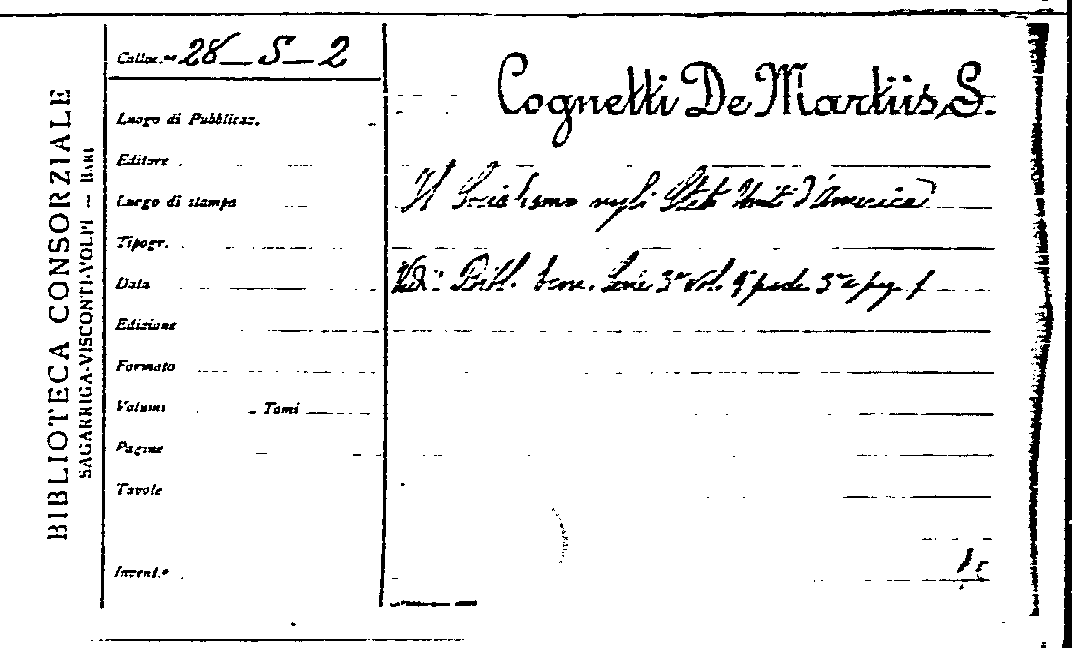 BIBLIOTECA CONSORZIALE
SAGARRIGA-VISCONTI-VOLPI — BARI
Colloc.ne 28 — S — 2
Luogo di Pubblicaz.
Editore
Luogo di stampa
Tipogr.
Data
Edizione
Formato
Volumi Tomi
Pagine
Tavole
Invent.o
Cognetti De Martiis, S.
Il Socialismo negli Stati Uniti d'America
Ved: Bibl. Econ. Serie 3a vol. 9 parte 3a pag. 1